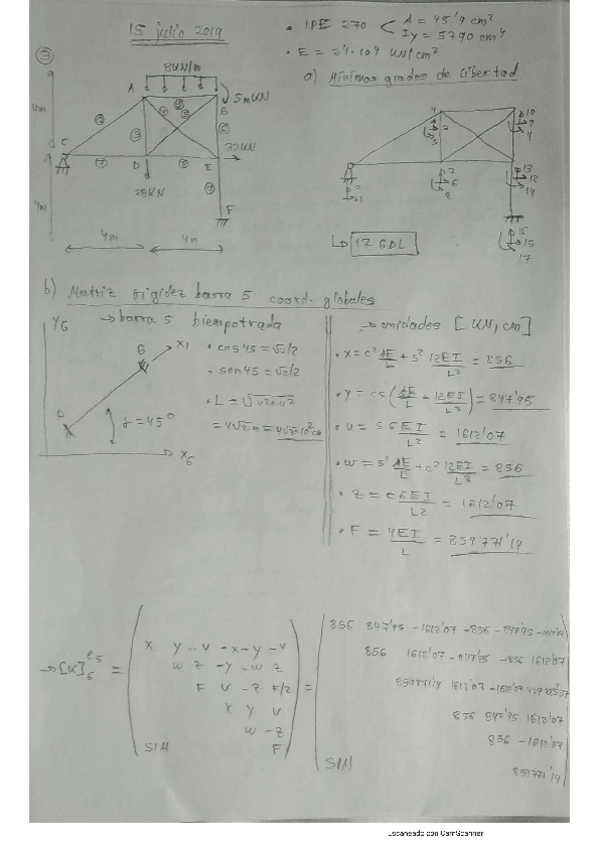 15 julio 2019
• IPE 270 < A = 45'9 cm²
Iy = 5790 cm⁴
• E = 2'1·10⁴ kN/cm²
③
8kN/m
a) Mínimos grados de libertad
A
B
5mkN
4m
C
D
E
32kN
28kN
F
4m
4m
4m
↳ 17 GDL
b) Matriz rigidez barra 5 coord. globales
→ barra 5 biempotrada
→ unidades [kN, cm]
YG
B
X1
D
γ = 45°
XG
• cos 45 = √2/2
• sen 45 = √2/2
• L = √4²+4²
= 4√2 m = 4√2·10² cm
• X = c² AE/L + s² 12EI/L³ = 856
• Y = cs (AE/L - 12EI/L³) = 847'95
• V = s 6EI/L² = 1612'07
• W = s² AE/L + c² 12EI/L³ = 856
• Z = c 6EI/L² = 1612'07
• F = 4EI/L = 859771'14
→ [K]G e5 =
X Y -V -X -Y -V
W Z -Y -W Z
F V -Z F/2
X Y V
W -Z
SIM F
=
856 847'95 -1612'07 -856 -847'95 -1612'07
856 1612'07 -847'95 -856 1612'07
859771'14 1612'07 -1612'07
856 847'95 1612'07
856 -1612'07
SIM 859771'14
Escaneado con CamScanner